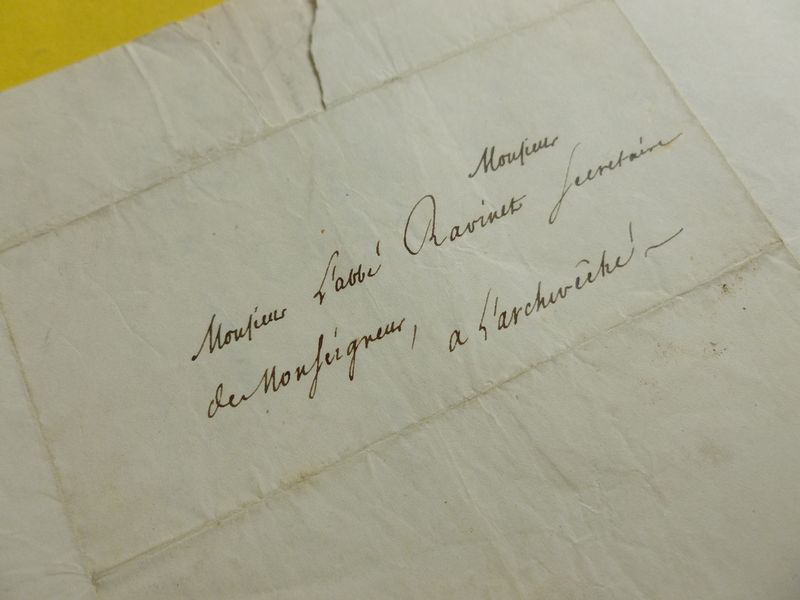 Monsieur
Monsieur L'abbé Ravinet Secretaire
de Monseigneur, a L'archevêché